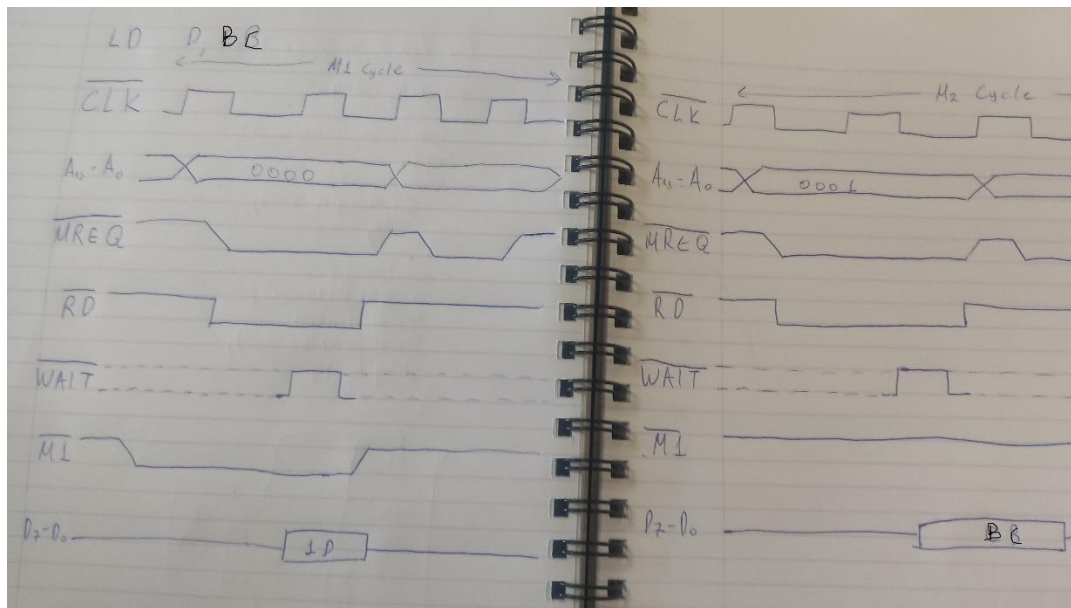 LD D, BB
M1 Cycle
CLK
A15-A0 0000
MREQ
RD
WAIT
M1
D7-D0 1D
M2 Cycle
CLK
A15-A0 0001
MREQ
RD
WAIT
M1
D7-D0 BB